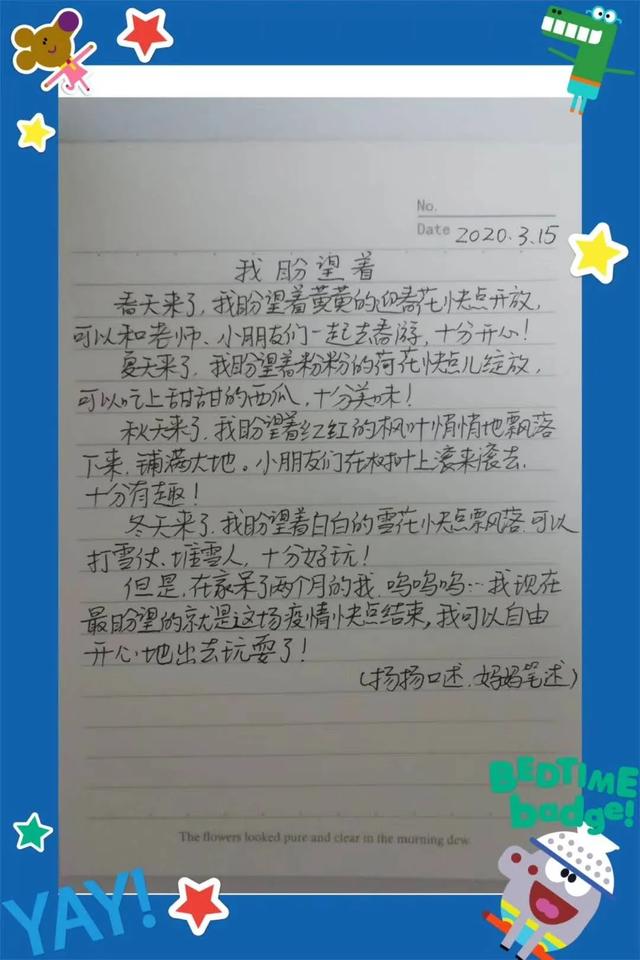 No.
Date 2020.3.15
我盼望着
春天来了,我盼望着黄黄的迎春花快点开放,
可以和老师、小朋友们一起去春游,十分开心!
夏天来了,我盼望着粉粉的荷花快点儿绽放,
可以吃上甜甜的西瓜,十分美味!
秋天来了,我盼望着红红的枫叶悄悄地飘落
下来,铺满大地。小朋友们在树叶上滚来滚去,
十分有趣!
冬天来了,我盼望着白白的雪花快点飘落,可以
打雪仗、堆雪人,十分好玩!
但是,在家呆了两个月的我,呜呜呜…我现在
最盼望的就是这场疫情快点结束,我可以自由
开心地出去玩耍了!
(扬扬口述,妈妈笔述)
BEDTIME
badge!
The flowers looked pure and clear in the morning dew.
YAY!